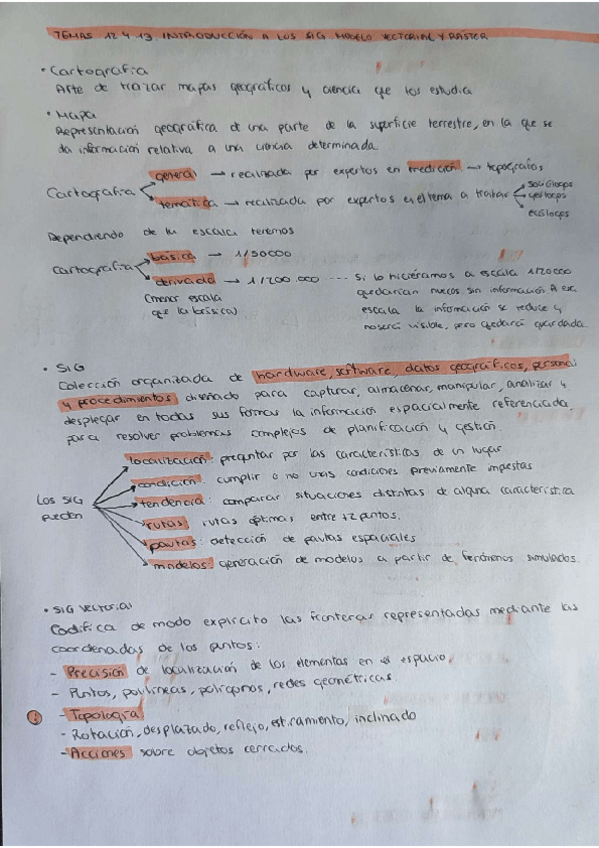 TEMAS 12 Y 13. INTRODUCCIÓN A LOS SIG. MODELO VECTORIAL Y RÁSTER
• Cartografía
Arte de trazar mapas geográficos y ciencia que los estudia
• Mapa
Representación geográfica de una parte de la superficie terrestre, en la que se
da información relativa a una ciencia determinada.
Cartografía
general → realizada por expertos en medición → topógrafos
temática → realizada por expertos en el tema a tratar
geólogos
ecólogos
Dependiendo de la escala tenemos
Cartografía
básica → 1/50000
derivada → 1/200.000 ---- si lo hiciéramos a escala 1/20000
(menor escala
que la básica)
quedarían huecos sin información. A esa
escala la información se reduce y
no será visible, pero quedará guardada.
• SIG
Colección organizada de hardware, software, datos geográficos, personal
y procedimientos diseñado para capturar, almacenar, manipular, analizar y
desplegar en todas sus formas la información espacialmente referenciada
para resolver problemas complejos de planificación y gestión.
Los SIG
pueden
localización: preguntar por las características de un lugar
condición: cumplir o no unas condiciones previamente impuestas
tendencia: comparar situaciones distintas de alguna característica
rutas: rutas óptimas entre +2 puntos.
pautas: detección de pautas espaciales
modelos: generación de modelos a partir de fenómenos simulados.
• SIG vectorial
Codifica de modo explícito las fronteras representadas mediante las
coordenadas de los puntos:
- Precisión de localización de los elementos en el espacio.
- Puntos, polilíneas, polígonos, redes geométricas.
! - Topología
- Rotación, desplazado, reflejo, estiramiento, inclinado
- Acciones sobre objetos cerrados.